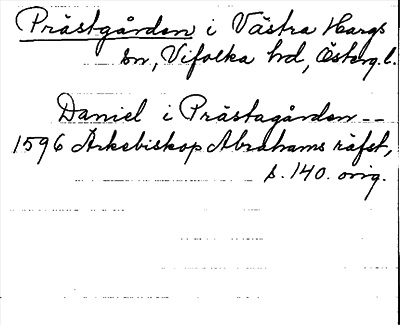 Prästgården i Västra Hargs
sn, Vifolka hd, Österg.l.
Daniel i Prästagården --
1596 Ärkebiskop Abrahams räfst,
s. 140. orig.